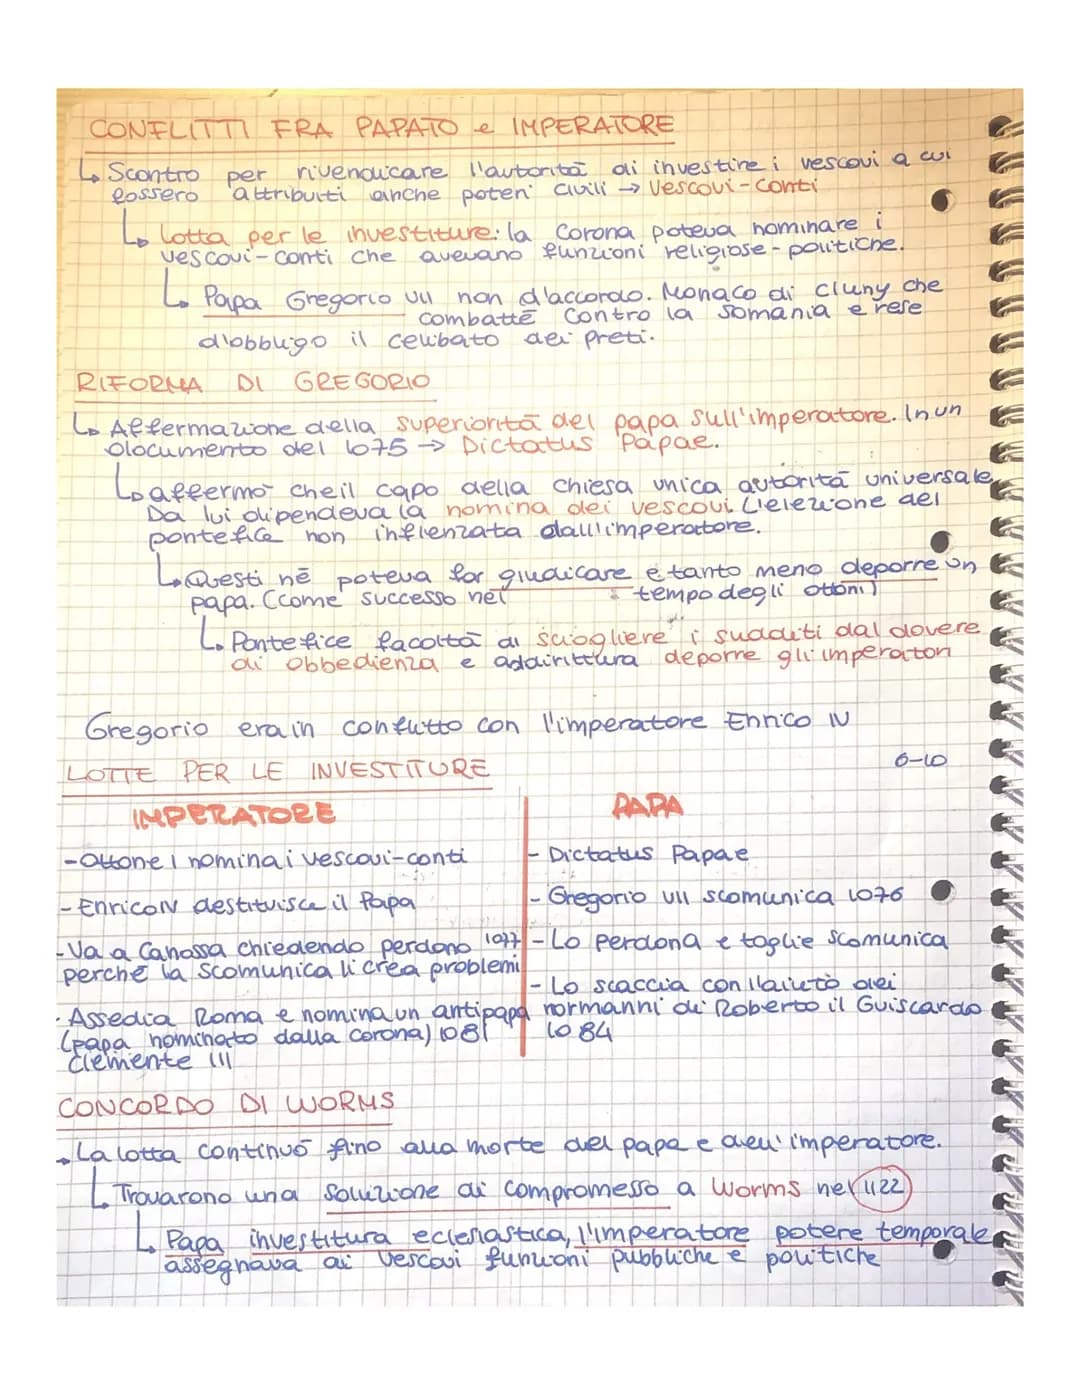 CONFLITTI FRA PAPATO e IMPERATORE
↳ Scontro per rivendicare l'autoritā di investire i vescovi a cui
fossero attribuiti anche poteri civili → Vescovi-conti
↳ lotta per le investiture: la Corona poteva nominare i
vescovi-conti che avevano funzioni religiose-politiche.
↳ Papa Gregorio VII non d'accordo. Monaco di Cluny che
combattē contro la somania e rese
d'obbligo il celibato dei preti.
RIFORMA DI GREGORIO
↳ Affermazione della superioritā del papa sull'imperatore. In un
documento del 1075 → Dictatus Papae.
↳ affermo che il capo della chiesa unica autoritā universale
Da lui dipendeva la nomina dei vescovi. L'elezione del
pontefice non inflenzata dall'imperatore.
↳ Questi nē poteva far giudicare e tanto meno deporre un
papa. (come successo nel tempo degli ottoni)
↳ Pontefice facoltā di sciogliere i sudditi dal dovere
di obbedienza e addirittura deporre gli imperatori
Gregorio era in conflitto con l'imperatore Enrico IV
6-10
LOTTE PER LE INVESTITURE
IMPERATORE
-Ottone I nomina i vescovi-conti
-Enrico IV destituisce il Papa
-Va a Canossa chiedendo perdono 1077
perchē la scomunica li crea problemi
-Assedia Roma e nomina un antipapa
(papa nominato dalla corona) 1081
Clemente III
PAPA
- Dictatus Papae
- Gregorio VII scomunica 1076
- Lo perdona e toglie scomunica
- Lo scaccia con l'aiuto dei
normanni di Roberto il Guiscardo
1084
CONCORDO DI WORMS
↳ La lotta continuō fino alla morte del papa e dell'imperatore.
↳ Trovarono una soluzione di compromesso a Worms nel 1122
↳ Papa investitura eclesiastica, l'imperatore potere temporale
assegnava ai vescovi funzioni pubbliche e politiche